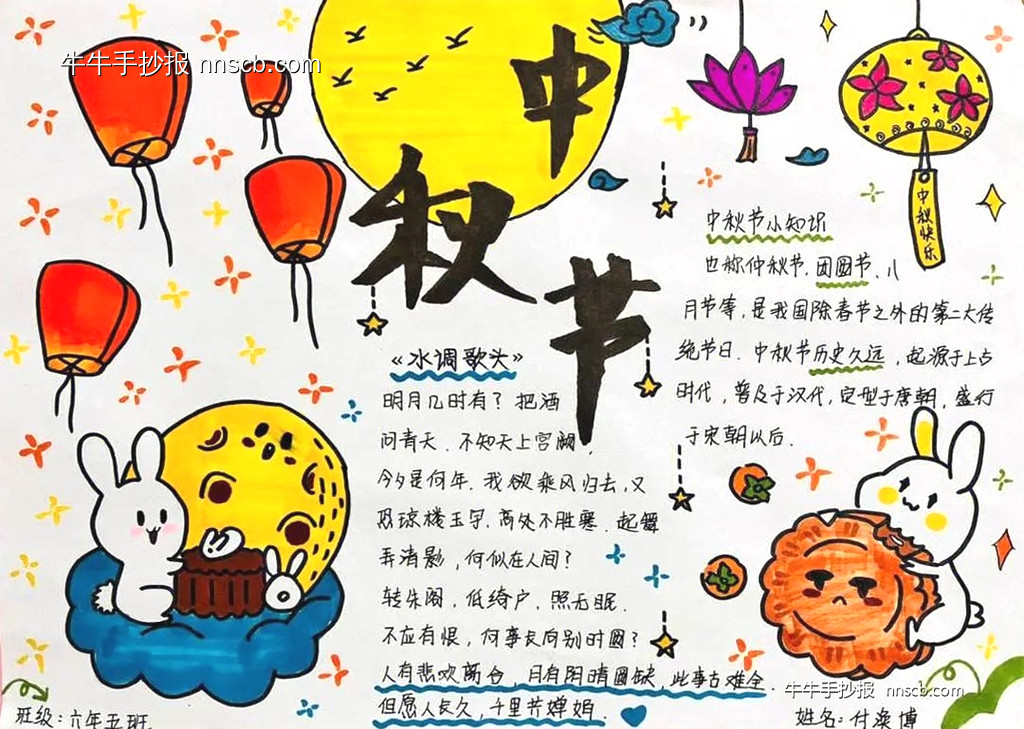 牛牛手抄报 nnscb.com
中
秋
节
中秋快乐
中秋节小知识
也称仲秋节、团圆节、八
月节等,是我国除春节之外的第二大传
统节日.中秋节历史久远,起源于上古
时代,普及于汉代,定型于唐朝,盛行
于宋朝以后.
《水调歌头》
明月几时有?把酒
问青天.不知天上宫阙,
今夕是何年.我欲乘风归去,又
恐琼楼玉宇.高处不胜寒.起舞
弄清影,何似在人间?
转朱阁,低绮户,照无眠.
不应有恨,何事长向别时圆?
人有悲欢离合,月有阴晴圆缺,此事古难全.
但愿人长久,千里共婵娟.
牛牛手抄报 nnscb.com
班级:六年五班
姓名:付涣博